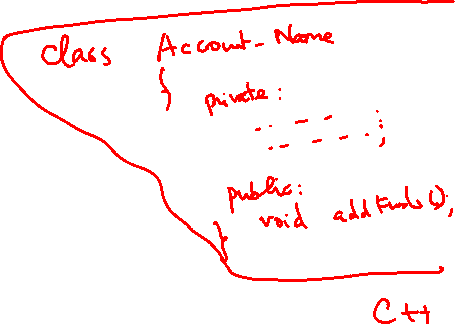 class Account_Name
{
private:
-- -- --
-- -- -- ;
public:
void addFunds();
}
C++